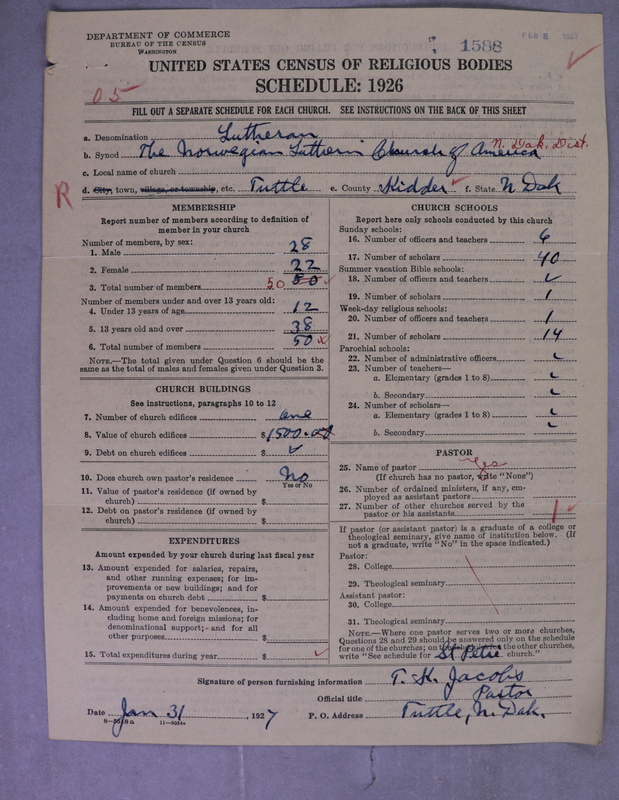 DEPARTMENT OF COMMERCE
BUREAU OF THE CENSUS
WASHINGTON
1588
FEB 8 1927
UNITED STATES CENSUS OF RELIGIOUS BODIES
SCHEDULE: 1926
05
FILL OUT A SEPARATE SCHEDULE FOR EACH CHURCH. SEE INSTRUCTIONS ON THE BACK OF THIS SHEET
a. Denomination Lutheran
b. Synod The Norwegian Luthern Church of America N. Dak. Dist.
c. Local name of church
R
d. City, town, village, or township, etc. Tuttle e. County Kidder f. State N Dak
MEMBERSHIP
Report number of members according to definition of
member in your church
Number of members, by sex:
1. Male 28
2. Female 22
3. Total number of members 50 50
Number of members under and over 13 years old:
4. Under 13 years of age 12
5. 13 years old and over 38
6. Total number of members 50 x
NOTE.—The total given under Question 6 should be
same as the total of males and females given under Question 3.
CHURCH BUILDINGS
See instructions, paragraphs 10 to 12
7. Number of church edifices one
8. Value of church edifices $1500.00
9. Debt on church edifices $
10. Does church own pastor's residence No
Yes or No
11. Value of pastor's residence (if owned by
church) $
12. Debt on pastor's residence (if owned by
church) $
EXPENDITURES
Amount expended by your church during last fiscal year
13. Amount expended for salaries, repairs,
and other running expenses; for im-
provements or new buildings; and for
payments on church debt $
14. Amount expended for benevolences, in-
cluding home and foreign missions; for
denominational support; and for all
other purposes $
15. Total expenditures during year $
CHURCH SCHOOLS
Report here only schools conducted by this church
Sunday schools:
16. Number of officers and teachers 6
17. Number of scholars 40
Summer vacation Bible schools:
18. Number of officers and teachers
19. Number of scholars
Week-day religious schools:
20. Number of officers and teachers 1
21. Number of scholars 14
Parochial schools:
22. Number of administrative officers
23. Number of teachers—
a. Elementary (grades 1 to 8)
b. Secondary
24. Number of scholars—
a. Elementary (grades 1 to 8)
b. Secondary
PASTOR
25. Name of pastor Yes
(If church has no pastor, write "None")
26. Number of ordained ministers, if any, em-
ployed as assistant pastors
27. Number of other churches served by the
pastor or his assistants 1
If pastor (or assistant pastor) is a graduate of a college or
theological seminary, give name of institution below. (If
not a graduate, write "No" in the space indicated.)
Pastor:
28. College
29. Theological seminary
Assistant pastor:
30. College
31. Theological seminary
NOTE.—Where one pastor serves two or more churches,
Questions 28 and 29 should be answered only on the schedule
for one of the churches; on the schedules for the other churches,
write "See schedule for St Petri church."
Signature of person furnishing information T. K. Jacobs
Official title Pastor
Date Jan 31, 1927 P. O. Address Tuttle, N. Dak.